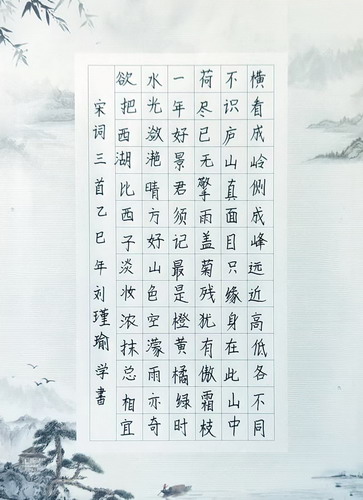 横看成岭侧成峰远近高低各不同
不识庐山真面目只缘身在此山中
荷尽已无擎雨盖菊残犹有傲霜枝
一年好景君须记最是橙黄橘绿时
水光潋滟晴方好山色空濛雨亦奇
欲把西湖比西子淡妆浓抹总相宜
宋词三首乙巳年刘瑾瑜学書